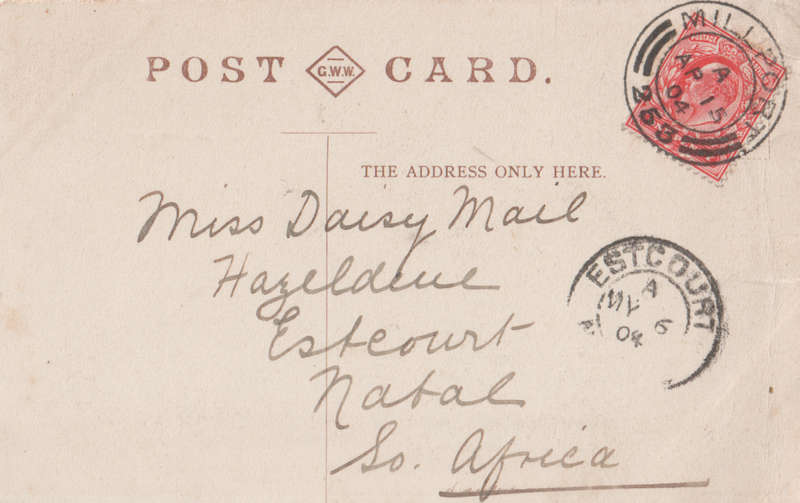 POST G.W.W. CARD.
MILLPORT
A
AP 15
04
253
THE ADDRESS ONLY HERE.
Miss Daisy Mail
Hazeldene
Estcourt
Natal
So. Africa
ESTCOURT
A
MY 6
04